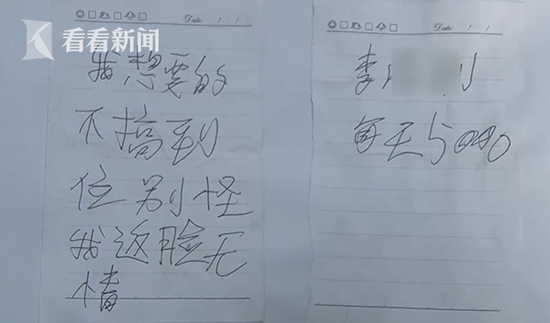 看看新闻
Date / /
我想要的
不搞到
位别怪
我返脸无
情
Date / /
李
每天5000